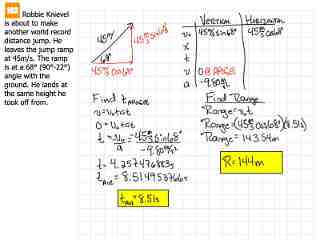 Robbie Knievel
is about to make
another world record
distance jump. He
leaves the jump ramp
at 45m/s. The ramp
is at a 68° (90°-22°)
angle with the
ground. He lands at
the same height he
took off from.
45m/s
45m/s sin68°
68°
45m/s cos68°
Vertical Horizontal
v₀ 45m/s sin68° 45m/s cos68°
x
t
v 0@APOGEE
a -9.80m/s²
Find tAPOGEE
v=v₀+at
0=v₀+at
t=-v₀/a=-45m/s sin68°/-9.80m/s²
t=4.257476883s
tAir=8.514953766s
tAir=8.51s
Find Range
Range=vₓt
Range=(45m/s cos68°)(8.51s)
Range=143.54m
R=144m